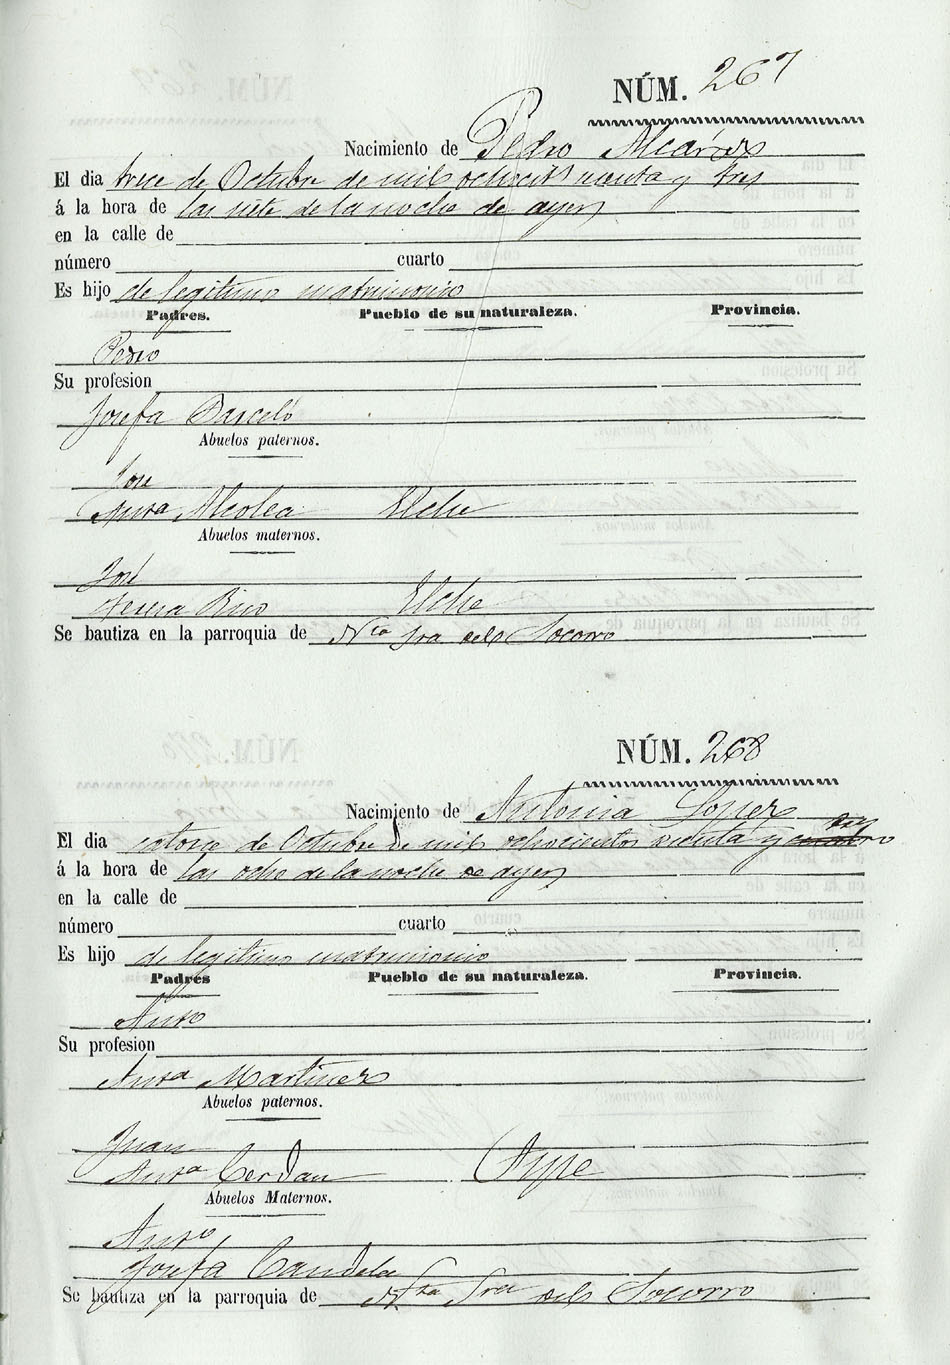 NÚM. 267
Nacimiento de Pedro Alcáraz
El dia trece de Octubre de mil ochocits noventa y tres
á la hora de las siete de la noche de ayer
en la calle de
número cuarto
Es hijo de legitimo matrimonio
Padres. Pueblo de su naturaleza. Provincia.
Pedro
Su profesion
Josefa Barceló
Abuelos paternos.
José
Antª Alcolea Elche
Abuelos maternos.
José
Teresa Rico Elche
Se bautiza en la parroquia de Ntra Sra del Socorro
NÚM. 268
Nacimiento de Antonia Lopez
El dia catorce de Octubre de mil ochocientos noventa y cuatro tres
á la hora de las ocho de la noche de ayer
en la calle de
número cuarto
Es hijo de legitimo matrimonio
Padres Pueblo de su naturaleza. Provincia.
Antº
Su profesion
Antª Martinez
Abuelos paternos.
Juan
Antª Cerdan Aspe
Abuelos Maternos.
Antº
Josefa Candela
Se bautiza en la parroquia de Ntra Sra del Socorro